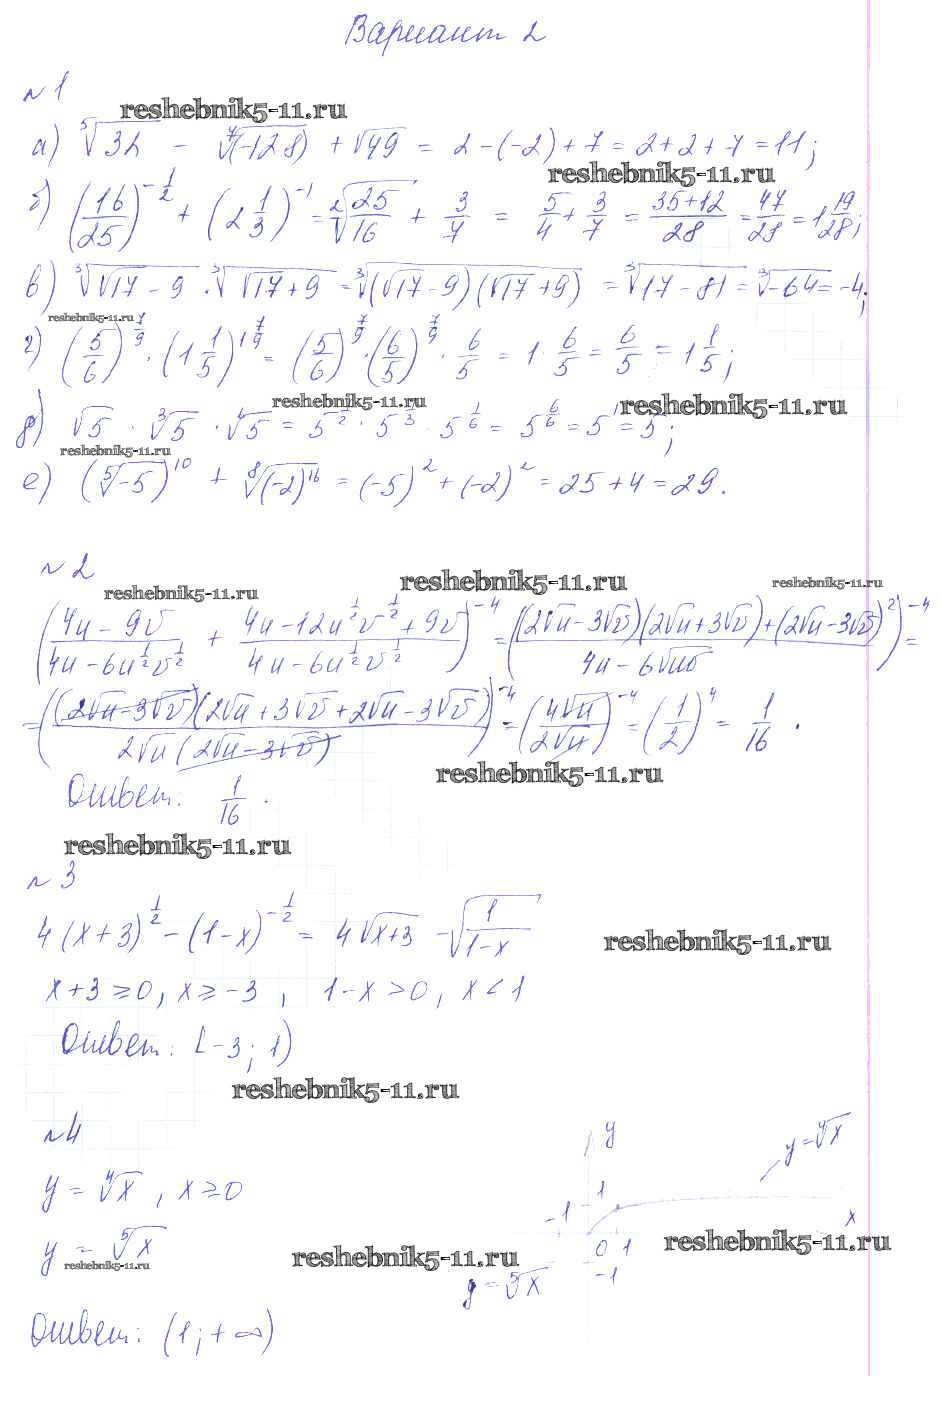 Вариант 2
№1
reshebnik5-11.ru
а) ⁵√32 - ⁷√(-128) + √49 = 2 - (-2) + 7 = 2 + 2 + 7 = 11;
reshebnik5-11.ru
б) (16/25)^(-1/2) + (2 1/3)^(-1) = ²√(25/16) + 3/7 = 5/4 + 3/7 = (35+12)/28 = 47/28 = 1 19/28;
в) ³√(√17 - 9) · ³√(√17 + 9) = ³√((√17 - 9)(√17 + 9)) = ³√(17 - 81) = ³√(-64) = -4;
reshebnik5-11.ru
г) (5/6)^(7/9) · (1 1/5)^(1 7/9) = (5/6)^(7/9) · (6/5)^(7/9) · 6/5 = 1 · 6/5 = 6/5 = 1 1/5;
reshebnik5-11.ru reshebnik5-11.ru
д) √5 · ³√5 · ⁶√5 = 5^(1/2) · 5^(1/3) · 5^(1/6) = 5^(6/6) = 5¹ = 5;
reshebnik5-11.ru
е) (⁵√-5)¹⁰ + ⁸√(-2)¹⁶ = (-5)² + (-2)² = 25 + 4 = 29.
№2
reshebnik5-11.ru reshebnik5-11.ru reshebnik5-11.ru
((4u - 9v)/(4u - 6u^(1/2)v^(1/2)) + (4u - 12u^(1/2)v^(1/2) + 9v)/(4u - 6u^(1/2)v^(1/2)))^(-4) = (((2√u - 3√v)(2√u + 3√v) + (2√u - 3√v)²)/(4u - 6√uv))^(-4) =
= (((2√u - 3√v)(2√u + 3√v + 2√u - 3√v))/(2√u(2√u - 3√v)))^(-4) = (4√u/2√u)^(-4) = (1/2)^4 = 1/16.
reshebnik5-11.ru
Ответ: 1/16.
reshebnik5-11.ru
№3
4(x+3)^(1/2) - (1-x)^(-1/2) = 4√(x+3) - √(1/(1-x))
reshebnik5-11.ru
x + 3 ≥ 0, x ≥ -3, 1 - x > 0, x < 1
Ответ: [-3; 1)
reshebnik5-11.ru
№4
y = ⁴√x, x ≥ 0
y = ⁵√x
reshebnik5-11.ru
y
y = ⁴√x
1
-1
x
0 1
-1
reshebnik5-11.ru reshebnik5-11.ru
y = ⁵√x
Ответ: (1; +∞)